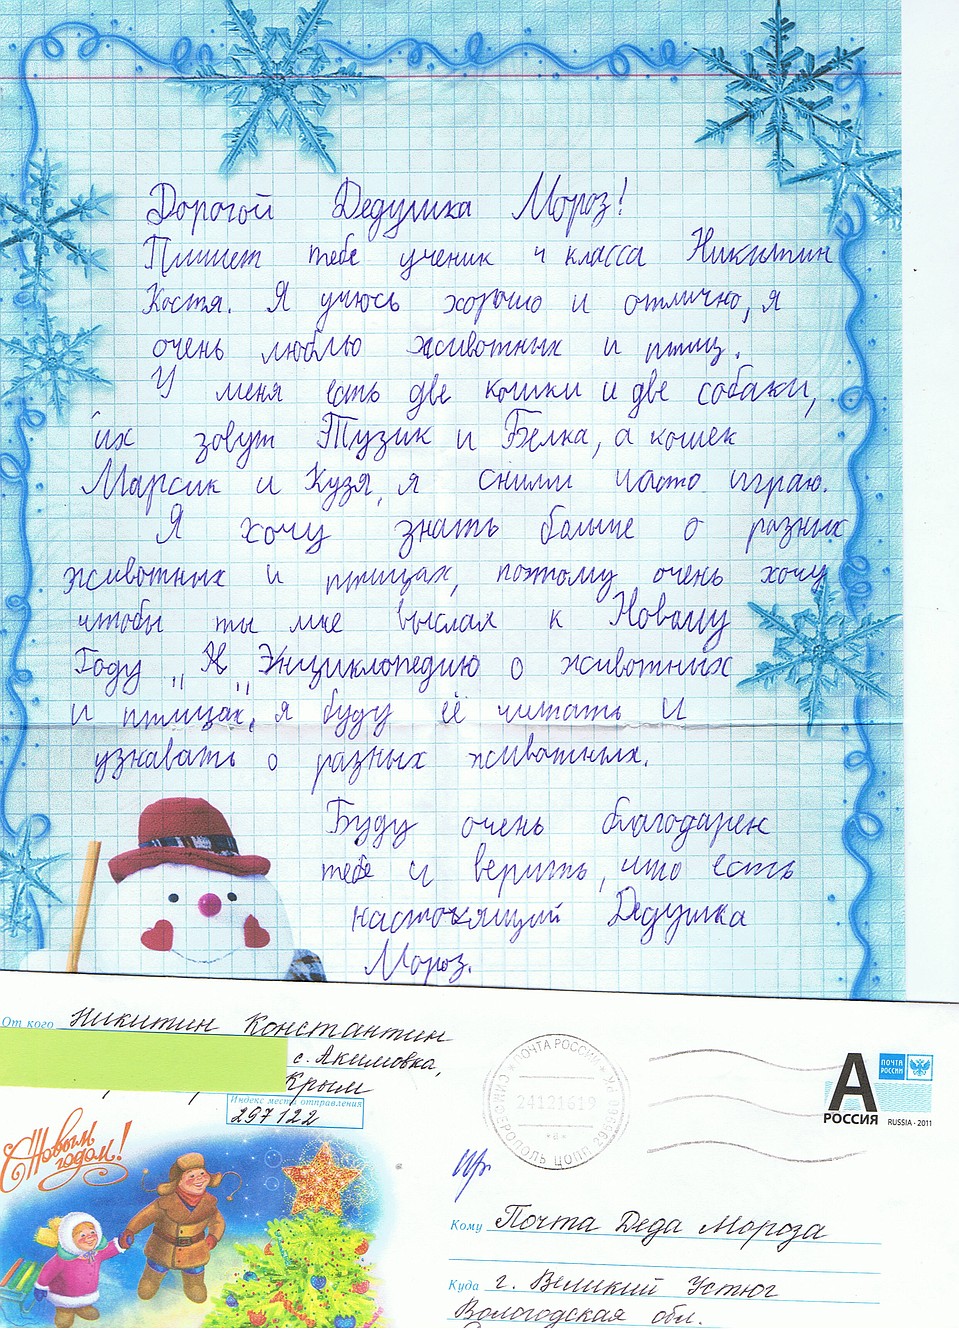 Дорогой Дедушка Мороз!
Пишет тебе ученик 4 класса Никитин
Костя. Я учюсь хорошо и отлично, я
очень люблю животных и птиц.
У меня есть две кошки и две собаки,
их зовут Тузик и Белка, а кошек
Марсик и Кузя, я сними часто играю.
Я хочу знать больше о разных
животных и птицах, поэтому очень хочу
чтобы ты мне выслал к Новому
Году „ Энциклопедию о животных
и птицах, я буду её читать и
узнавать о разных животных.
Буду очень благодарен
тебе и верить, что есть
настоящий Дедушка
Мороз.
От кого Никитин Константин
с. Акимовка,
Крым
Индекс места отправления
297122
С Новым годом!
ПОЧТА РОССИИ
СИМФЕРОПОЛЬ ЦОПП
24121619
А
РОССИЯ
ПОЧТА РОССИИ
RUSSIA • 2011
Кому Почта Деда Мороза
Куда г. Великий Устюг
Вологодская обл.